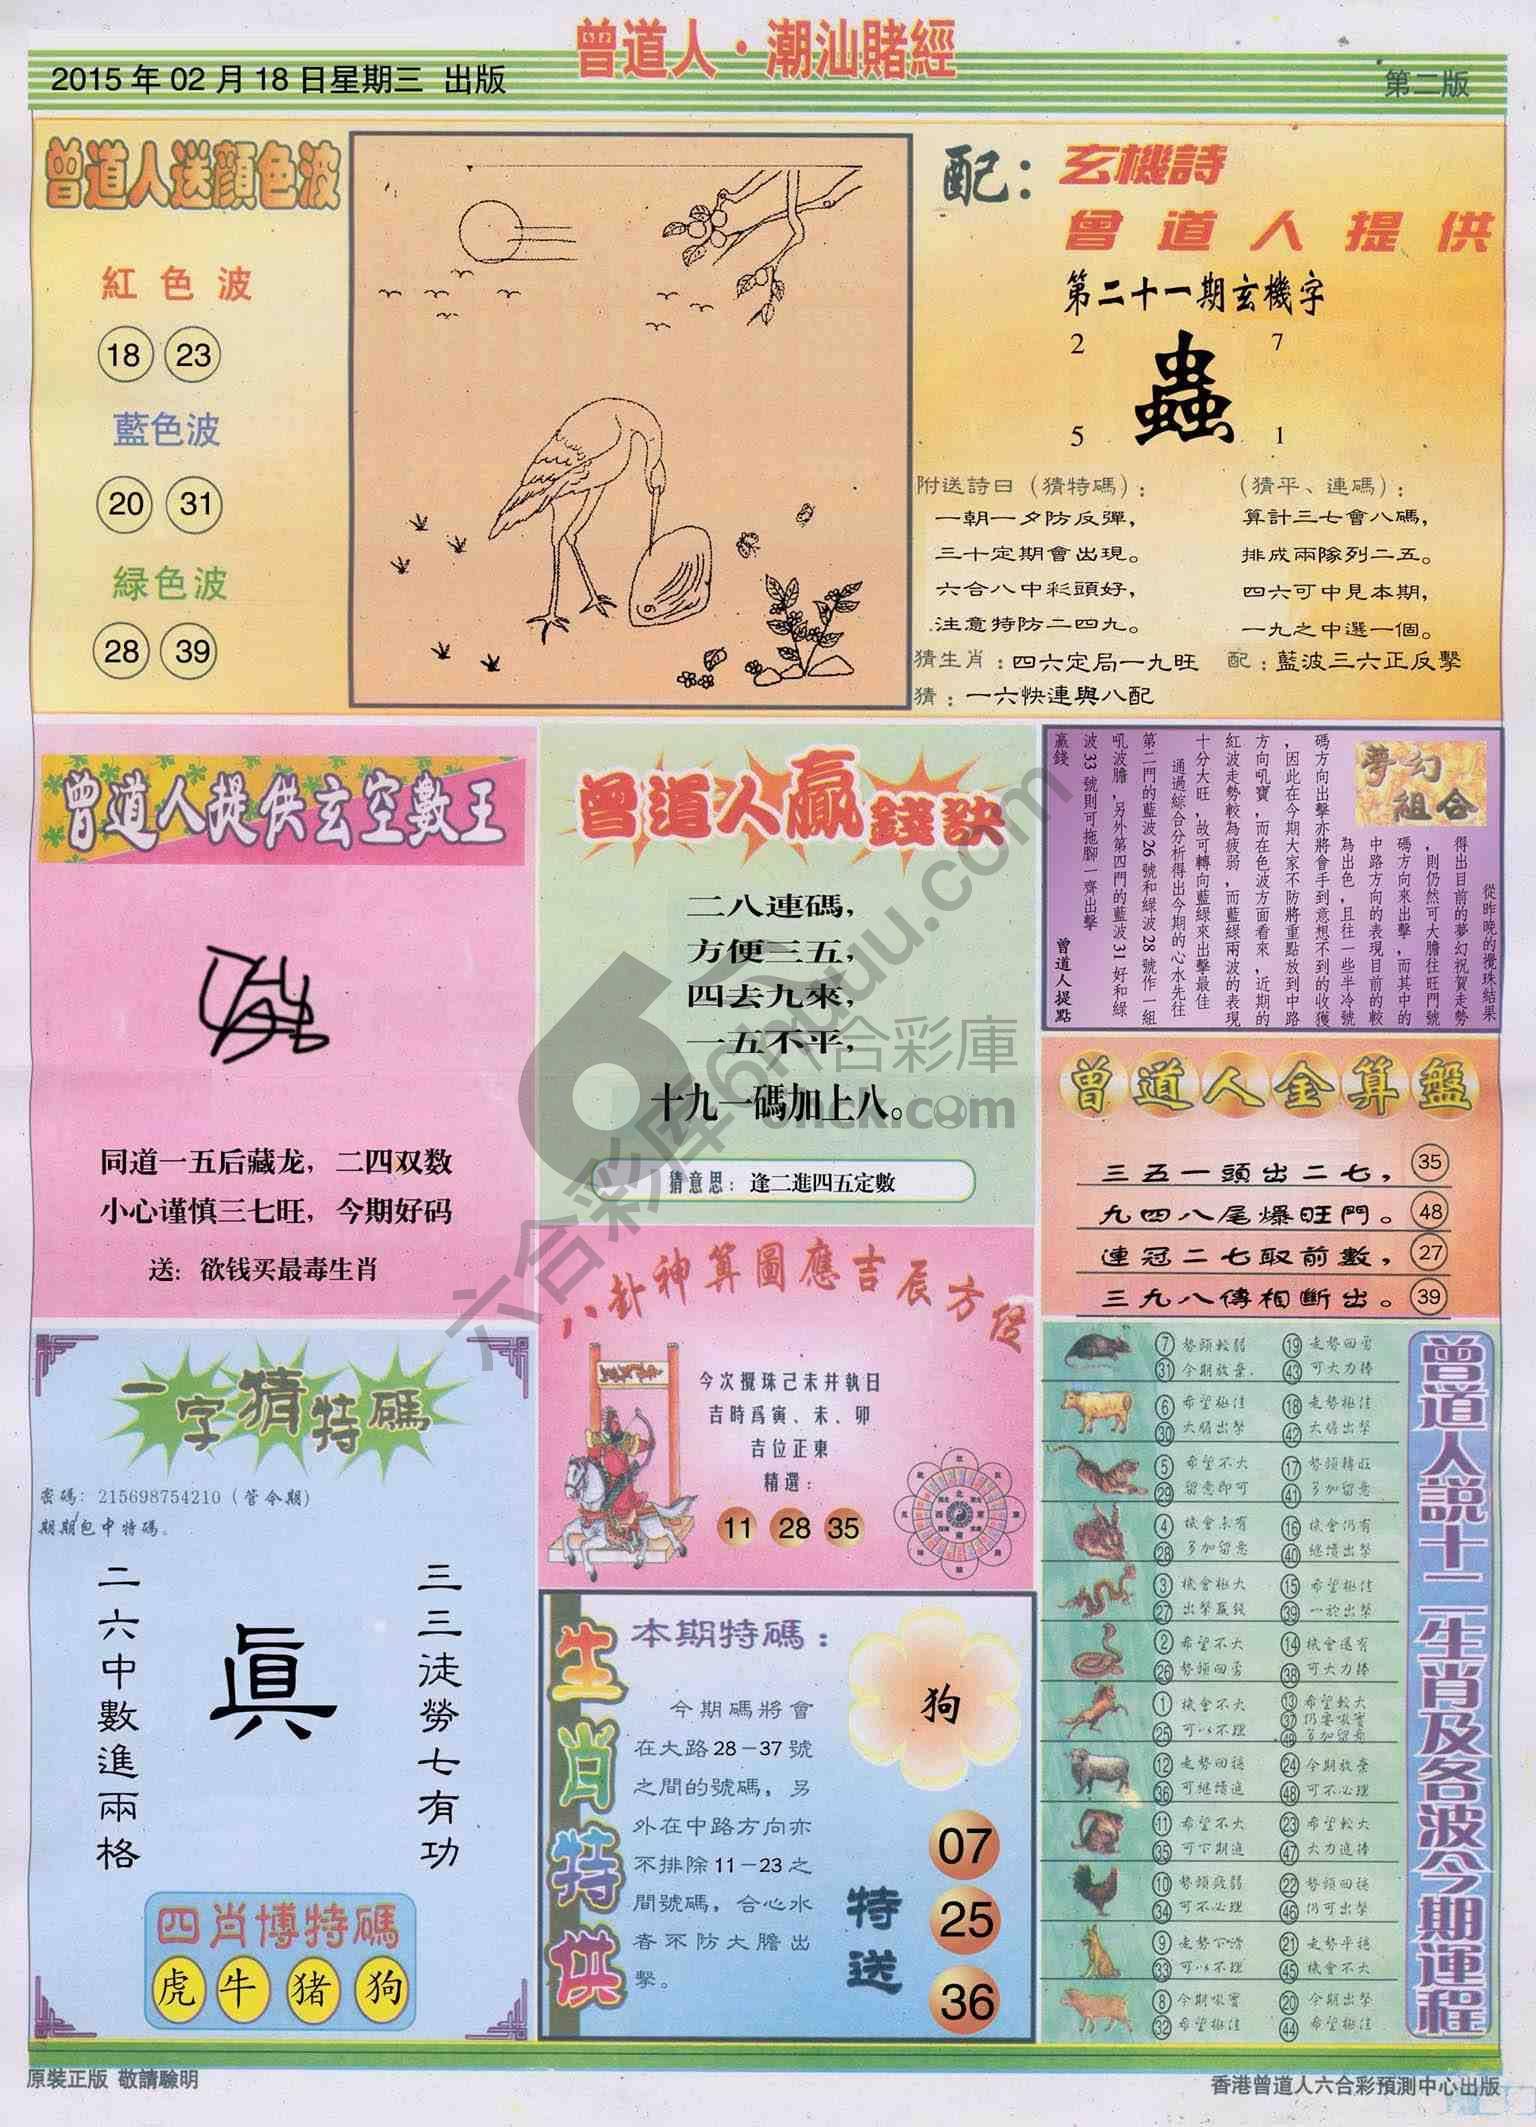 曾道人·潮汕賭經
2015年02月18日星期三 出版
第二版
曾道人送顔色波
紅色波
18 23
藍色波
20 31
緑色波
28 39
配：玄機詩
曾道人提供
第二十一期玄機字
2 7
蟲
5 1
附送詩曰（猜特碼）：
一朝一夕防反彈，
三十定期會出現。
六合八中彩頭好，
注意特防二四九。
（猜平、連碼）：
算計三七會八碼，
排成兩隊列二五。
四六可中見本期，
一九之中選一個。
猜生肖：四六定局一九旺 配：藍波三六正反擊
猜：一六快連與八配
曾道人提供玄空數王
同道一五后藏龙，二四双数
小心谨慎三七旺，今期好码
送：欲钱买最毒生肖
曾道人贏錢訣
二八連碼，
方便三五，
四去九來，
一五不平，
十九一碼加上八。
猜意思：逢二進四五定數
夢幻
組合
從昨晚的攪珠結果
得出目前的夢幻祝賀走勢
，則仍然可大膽往旺門號
碼方向來出擊，而其中的
中路方向的表現目前的較
為出色，且往一些半冷號
碼方向出擊亦將會手到意想不到的收獲
，因此在今期大家不防將重點放到中路
方向吼寶，而在色波方面看來，近期的
紅波走勢較為疲弱，而藍綠兩波的表現
十分大旺，故可轉向藍綠來出擊最佳
通過綜合分析得出今期的心水先往
第二門的藍波26號和綠波28號作一組
吼波膽，另外第四門的藍波31好和綠
波33號則可拖腳一齊出擊
贏錢
曾道人提點
曾道人金算盤
三五一頭出二七， 35
九四八尾爆旺門。 48
連冠二七取前數， 27
三九八傳相斷出。 39
八卦神算圖應吉辰方位
今次攪珠己未井執日
吉時爲寅、未、卯
吉位正東
精選：
11 28 35
一字猜特碼
密碼：215698754210（管令期）
期期包中特碼。
三三徒勞七有功
真
二六中數進兩格
四肖博特碼
虎 牛 猪 狗
生肖特供
本期特碼：
今期碼將會
在大路28－37號
之間的號碼，另
外在中路方向亦
不排除11－23之
間號碼，合心水
者不防大膽出
擊。
狗
特送
07
25
36
曾道人説十二生肖及各波今期運程
7 勢頭較弱 19 走勢回勇
31 今期放棄 43 可大力捧
6 希望極佳 18 走勢極佳
30 大膽出擊 42 大膽出擊
5 希望不大 17 勢頭轉旺
29 留意即可 41 多加留意
4 機會未有 16 機會仍有
28 多加留意 40 繼續出擊
3 機會極大 15 希望極佳
27 出擊贏錢 39 一於出擊
2 希望不大 14 機會還有
26 勢頭回勇 38 可大力捧
1 機會不大 13 希望較大
25 可以不理 37 仍要吸寶
49 多加留意
12 走勢回穩 24 今期放棄
36 可繼續進 48 可不必理
11 希望不大 23 希望較大
35 可下期進 47 大力進捧
10 勢頭疲弱 22 勢頭回穩
34 可不必理 46 仍可出擊
9 走勢下滑 21 走勢平穩
33 可以不理 45 機會不大
8 今期吸寶 20 今期出擊
32 希望極佳 44 希望極佳
原裝正版 敬請驗明
香港曾道人六合彩預測中心出版
六合彩库6huuu.com
六合彩庫
6hck.com